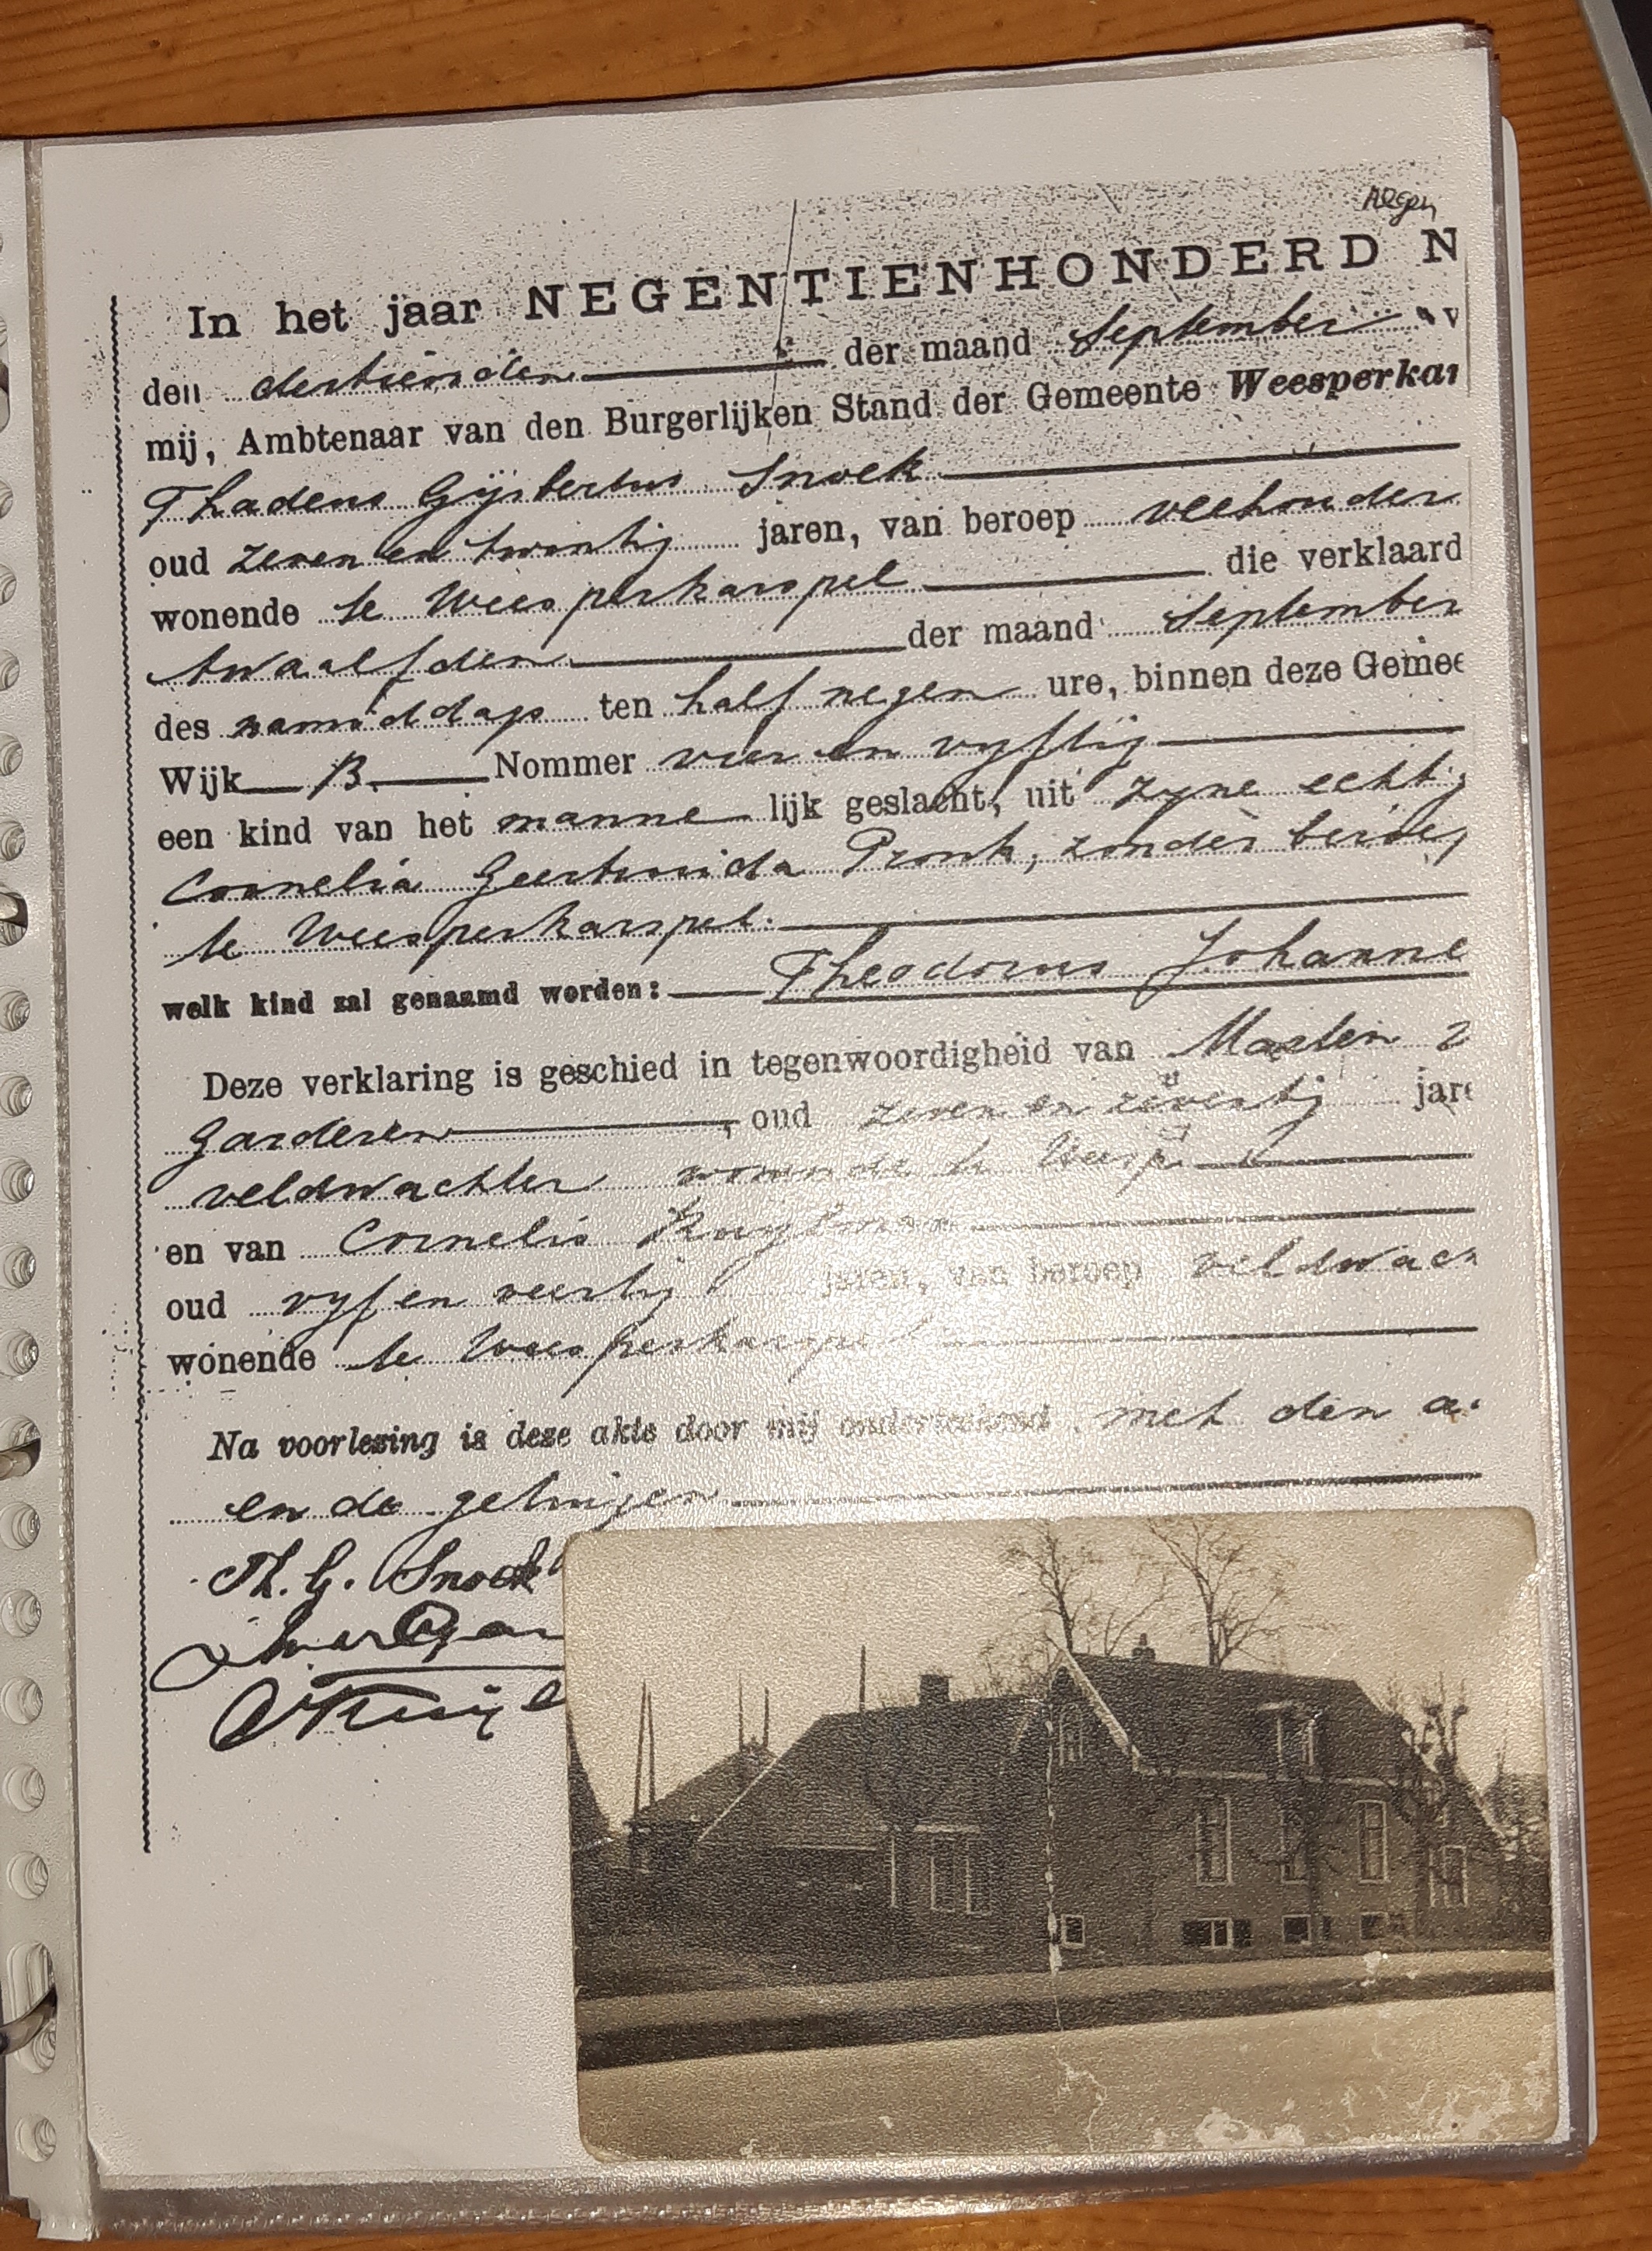 Negen
In het jaar NEGENTIENHONDERD N
den dertienden der maand September v
mij, Ambtenaar van den Burgerlijken Stand der Gemeente Weesperkar
Thadeus Gijsbertus Snoek
oud zeven en twintig jaren, van beroep veehouder
wonende te Weesperkarspel die verklaard
twaalfden der maand September
des namiddags ten half negen ure, binnen deze Gemee
Wijk B. Nommer vier en vyftig
een kind van het manne lijk geslacht, uit zyne echtg
Cornelia Geertruida Pronk, zonder beroep
te Weesperkarspel.
welk kind zal genaamd worden: Theodorus Johanne
Deze verklaring is geschied in tegenwoordigheid van Maarten
Garderen, oud zeven en zeventig jare
veldwachter wonende te Weesp
en van Cornelis
oud vyf en veertig jaren, van beroep veldwach
wonende te Weesperkarspel
Na voorlezing is deze akte door mij onderteekend met den a
en de getuigen
Th. G. Snoek